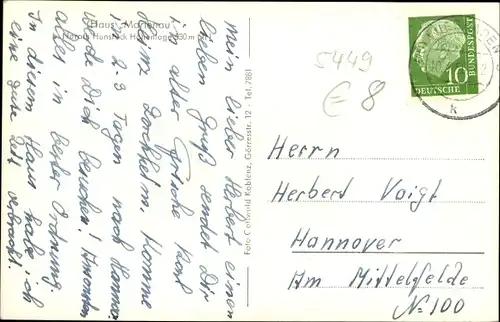 Haus "Marienau"
Hunsrück Höhenlage 530 m
Mein lieber Herbert einen
lieben Gruß sendet Dir
in alter Frische Karl
Heinz Dorchheim. Komme
in 2-3 Tagen nach Hannover
werde Dich besuchen! Ansonsten
alles in bester Ordnung.
In diesem Haus habe ich
eine gute Zeit verbracht.
Foto Gottwald Koblenz, Görresstr. 12 - Tel. 7881
5449
€ 8
10
DEUTSCHE
BUNDESPOST
k
Herrn
Herbert Voigt
Hannover
Am Mittelfelde
Nr. 100